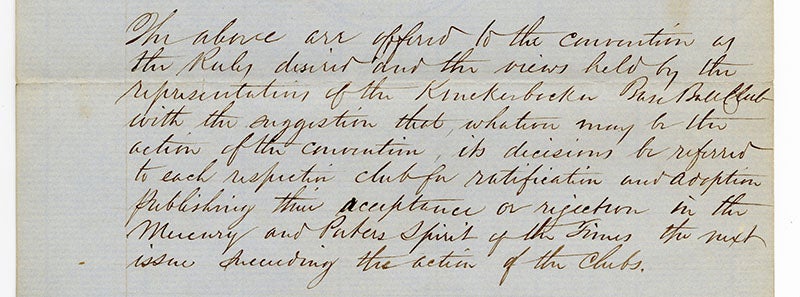 The above are offered to the convention as
the Rules desired and the views held by the
representatives of the Knickerbocker Base Ball Club
with the suggestion that, whatever may be the
action of the convention, its decisions be referred
to each respective club for ratification and adoption
publishing their acceptance or rejection in the
Mercury and Porters Spirit of the Times the next
issue succeeding the action of the Clubs.